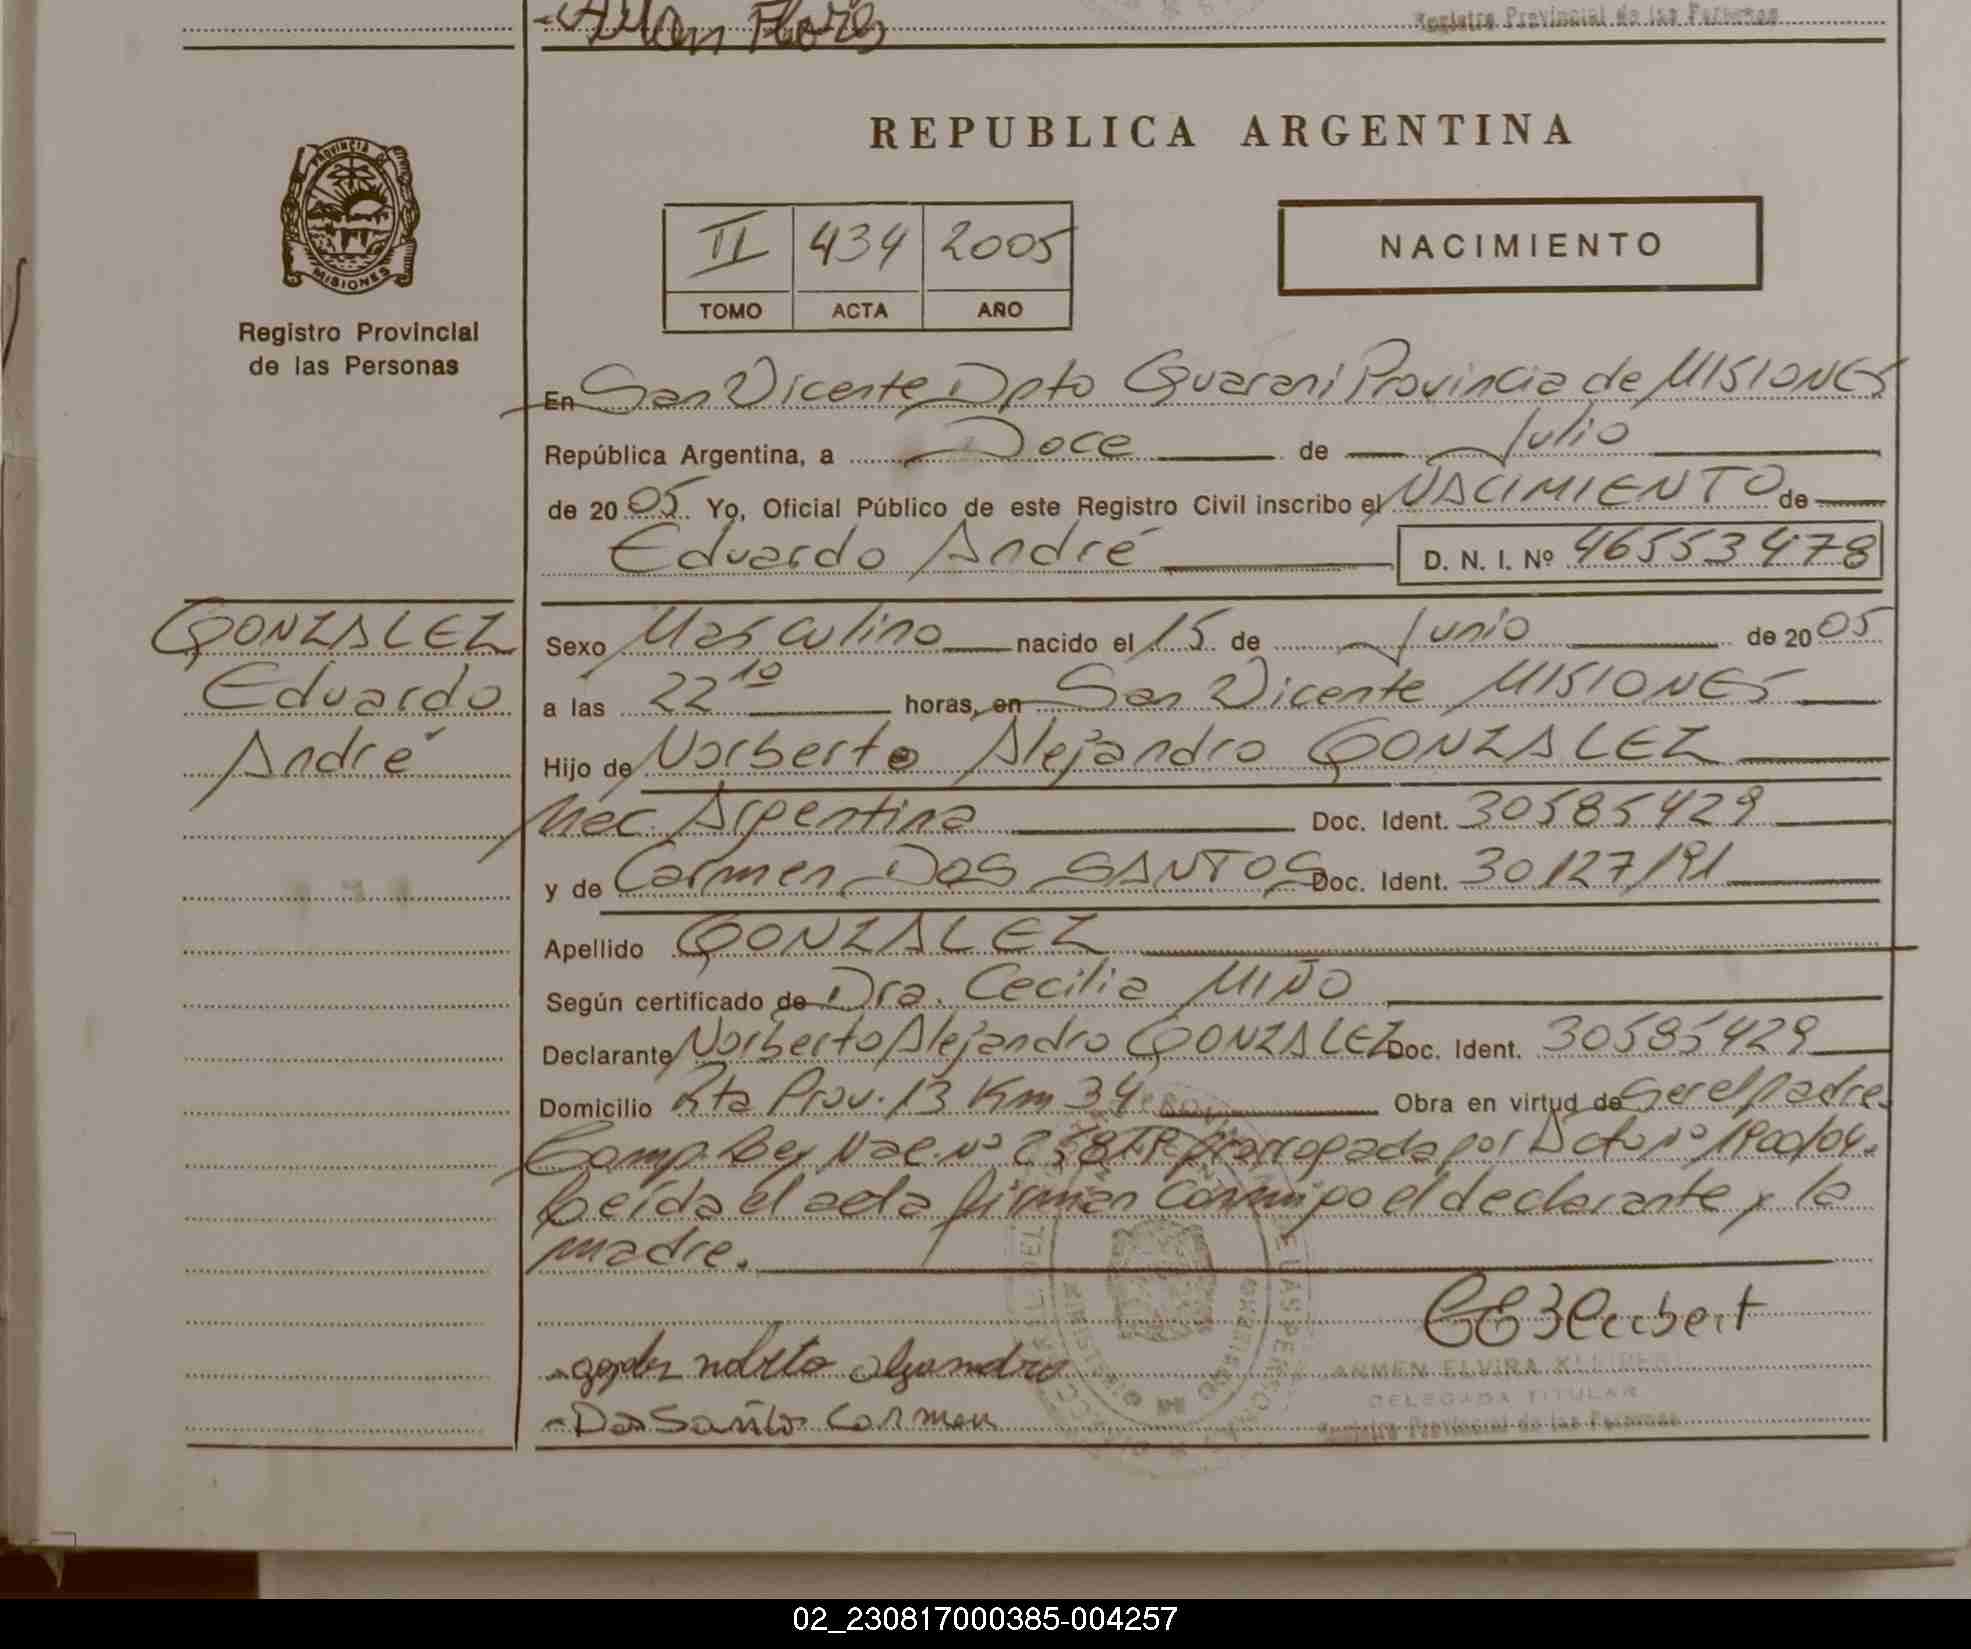 Allan Flores
Registro Provincial de las Personas
REPUBLICA ARGENTINA
PROVINCIA DE
MISIONES
Registro Provincial
de las Personas
II 434 2005
TOMO ACTA AÑO
NACIMIENTO
En San Vicente Dpto Guaraní Provincia de MISIONES
República Argentina, a Doce de Julio
de 2005 Yo, Oficial Público de este Registro Civil inscribo el NACIMIENTO de
Eduardo André D. N. I. Nº 46553478
GONZALEZ
Eduardo
André
Sexo Masculino nacido el 15 de Junio de 2005
a las 22 10 horas, en San Vicente MISIONES
Hijo de Norberto Alejandro GONZALEZ
Nac. Argentina Doc. Ident. 30585429
y de Carmen DOS SANTOS Doc. Ident. 30127191
Apellido GONZALEZ
Según certificado de Dra. Cecilia MIÑO
Declarante Norberto Alejandro GONZALEZ Doc. Ident. 30585429
Domicilio Rta Prov. 13 Km 34 Obra en virtud de Ser el padre.
Comp. Ley Nac. Nº prorrogada por Dcto Nº 1900/04.
Leída el acta firman conmigo el declarante y la
madre.
alejandro
- Dos Santos Carmen
DELEGADA TITULAR
Registro Provincial de las Personas
02_230817000385-004257